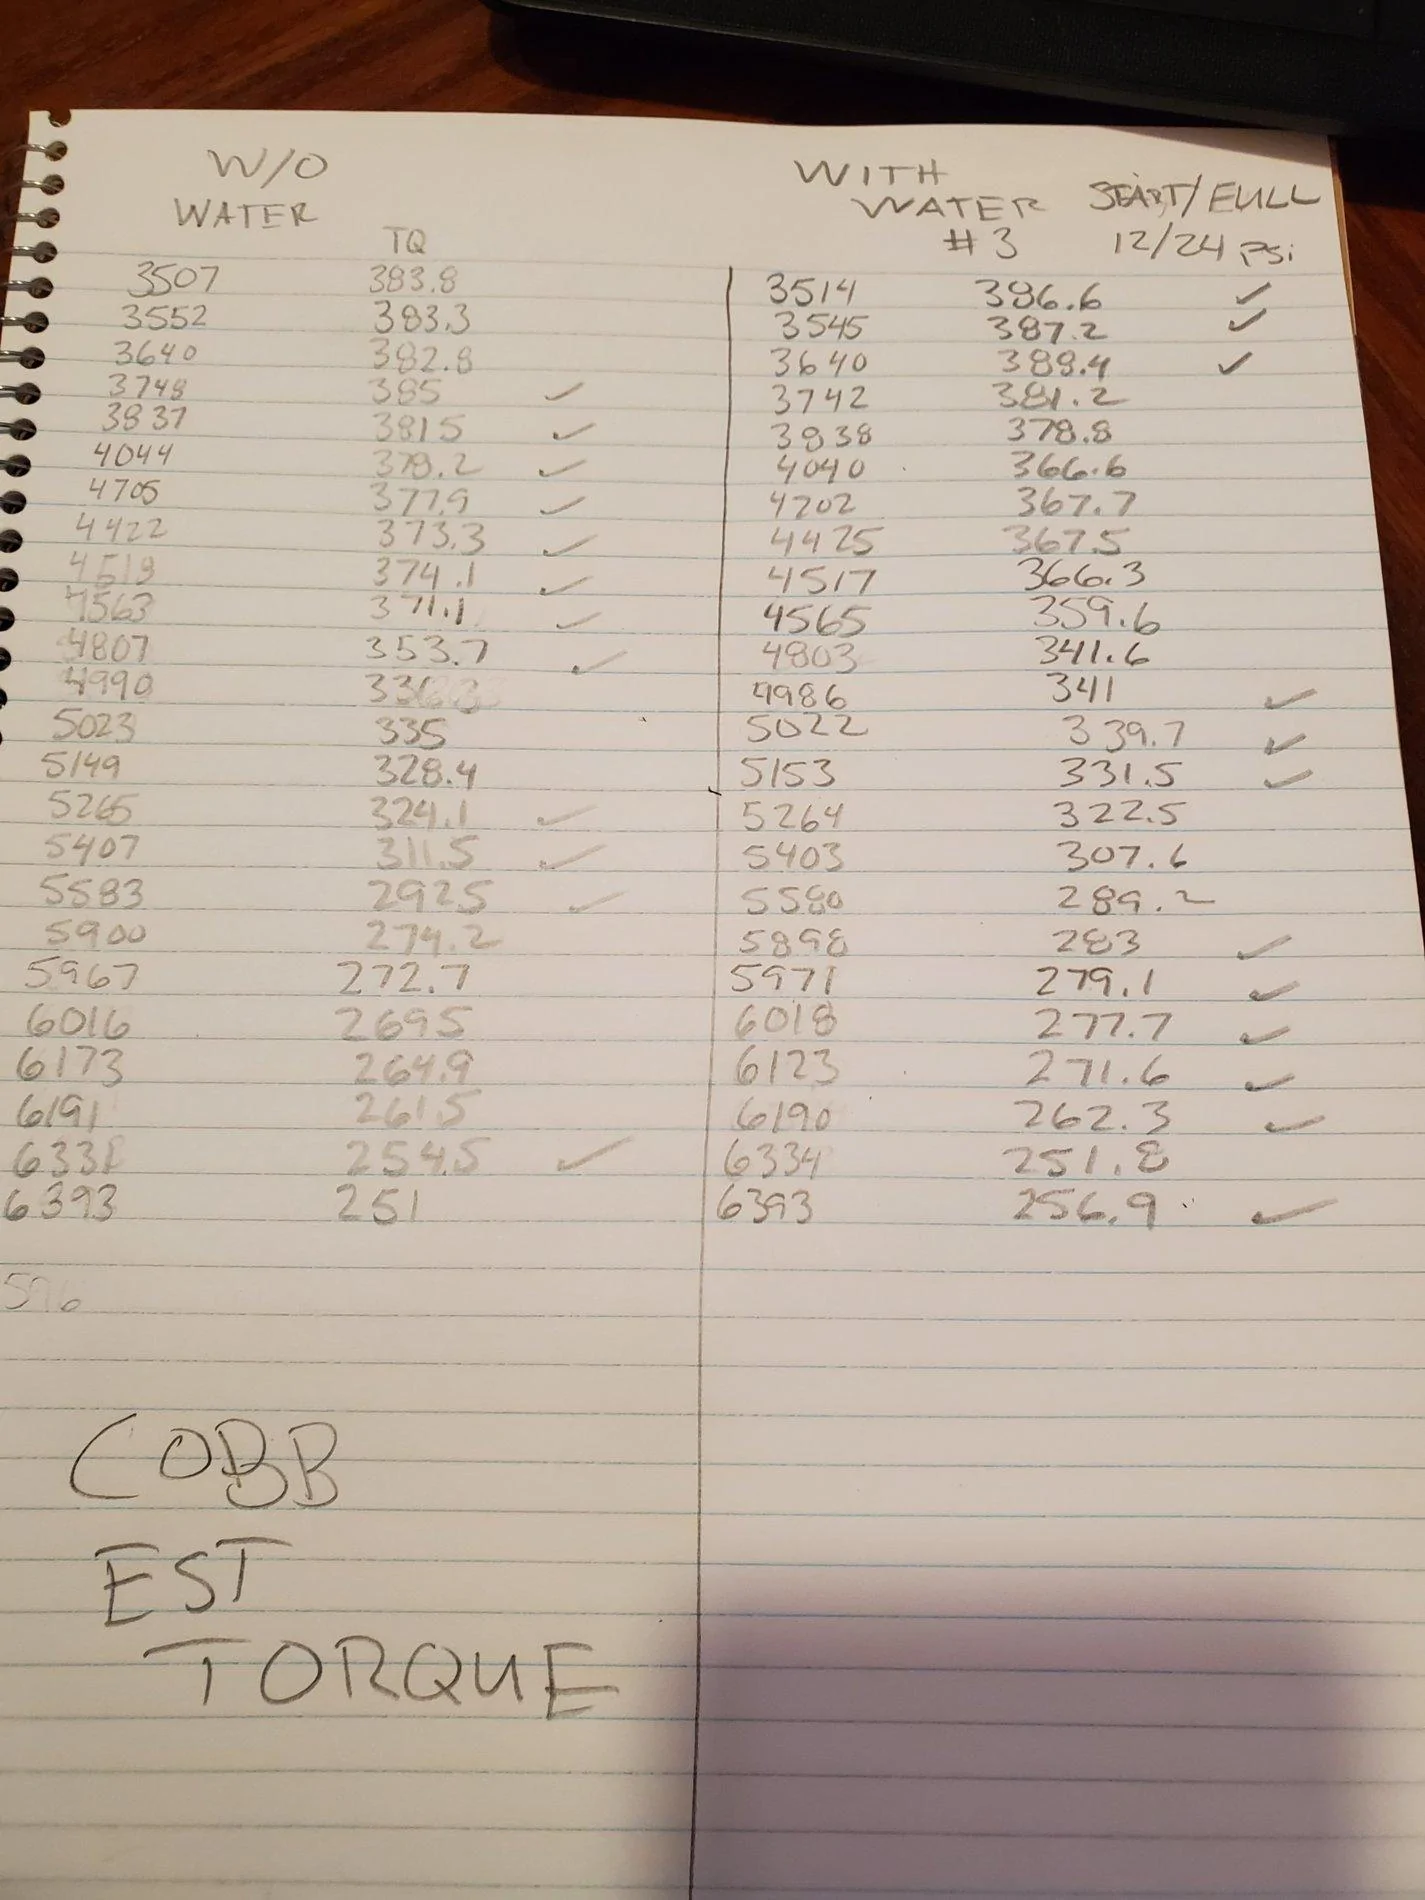 W/O WITH
WATER WATER START/FULL
TQ #3 12/24 PSi
3507 383.8 3514 386.6 ✓
3552 383.3 3545 387.2 ✓
3640 382.8 3640 388.4 ✓
3748 385 ✓ 3742 381.2
3837 381.5 ✓ 3838 378.8
4044 378.2 ✓ 4040 366.6
4705 377.9 ✓ 4702 367.7
4422 373.3 ✓ 4425 367.5
4519 374.1 ✓ 4517 366.3
4563 371.1 ✓ 4565 359.6
4807 353.7 ✓ 4803 341.6
4990 4986 341 ✓
5023 335 5022 339.7 ✓
5149 328.4 5153 331.5 ✓
5265 324.1 ✓ 5264 322.5
5407 311.5 ✓ 5403 307.6
5583 292.5 ✓ 5580 289.2
5900 274.2 5898 283 ✓
5967 272.7 5971 279.1 ✓
6016 269.5 6018 277.7 ✓
6173 264.9 6123 271.6 ✓
6191 261.5 6190 262.3 ✓
254.5 ✓ 6334 251.8
6393 251 6393 256.9 ✓
596
COBB
EST
TORQUE